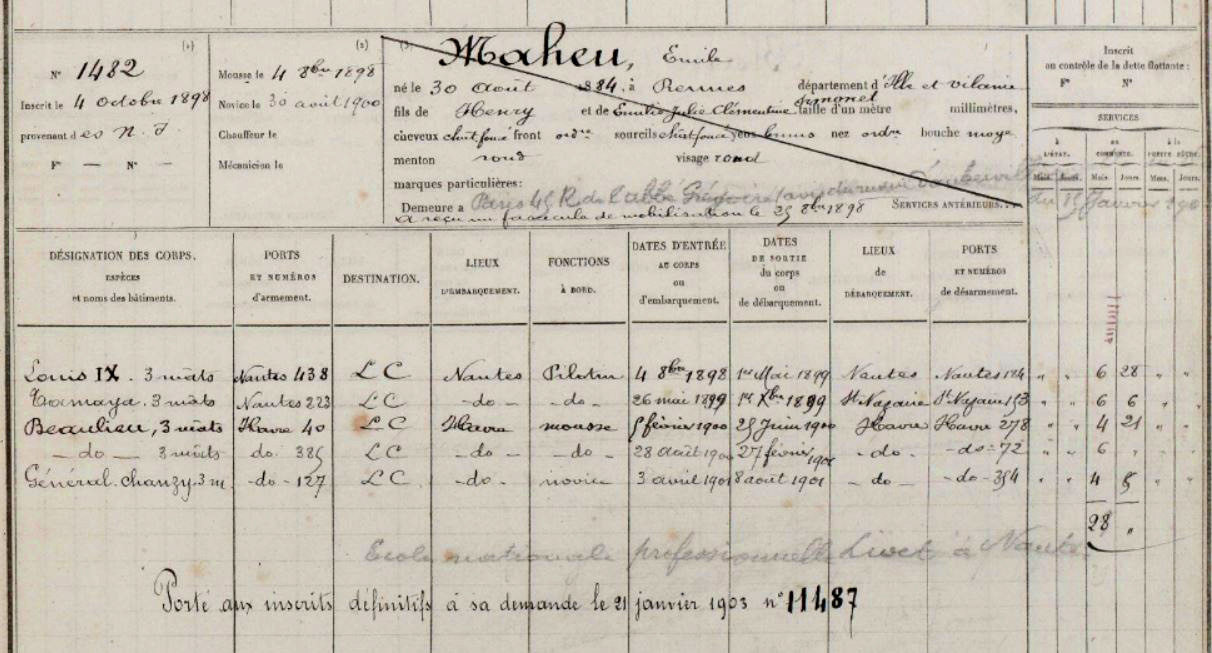 (1) (2) (3)
N° 1482
Inscrit le 4 octobre 1898
provenant d es N. I
F° — N° —
Mousse le 4 8bre 1898
Novice le 30 août 1900
Chauffeur le
Mécanicien le
Maheu, Emile
né le 30 août 1884, à Rennes département d'Ille et vilaine
fils de Henry et de Emilie Julie Clémentine Simonet taille d'un mètre millimètres,
cheveux chât foncé front ordre sourcils chât foncé yeux bruns nez ordre bouche moye
menton rond visage rond
marques particulières:
Demeure à Paris 45 R de l'abbé Grégoire (avis du
du 15 Janvier
A reçu un fascicule de mobilisation le 25 8bre 1898 SERVICES ANTÉRIEURS...
Inscrit
au contrôle de la dette flottante:
F° N°
SERVICES
à L'ÉTAT. au COMMERCE. à la PETITE PÊCHE.
Mois. Jours. Mois. Jours. Mois. Jours.
DÉSIGNATION DES CORPS. ESPÈCES et noms des bâtiments.
PORTS ET NUMÉROS d'armement.
DESTINATION.
LIEUX D'EMBARQUEMENT.
FONCTIONS À BORD.
DATES D'ENTRÉE AU CORPS ou d'embarquement.
DATES DE SORTIE du corps ou de débarquement.
LIEUX de DÉBARQUEMENT.
PORTS ET NUMÉROS de désarmement.
Louis IX. 3 mâts Nantes 438 LC Nantes Pilotin 4 8bre 1898 1er Mai 1899 Nantes Nantes 184 " " 6 28 " "
3 mâts Nantes 223 LC -do- -do- 26 mai 1899 1er Xbre 1899 St Nazaire St Nazaire 153 " " 6 6 " "
Beaulieu, 3 mâts Havre 40 LC Havre mousse 5 février 1900 25 Juin 1900 Havre Havre 278 " " 4 21 " "
-do- 3 mâts do. 385 LC -do- -do- 28 août 1900 27 février 1901 -do- -do- 72 " " 6 " " "
Général. chanzy. 3 m -do- 127 LC -do- novice 3 avril 1901 8 août 1901 -do- -do- 354 " " 4 5 " "
28 "
Ecole nationale professionnelle Livet à Nantes
Porté aux inscrits définitifs à sa demande le 21 janvier 1903 n° 11487